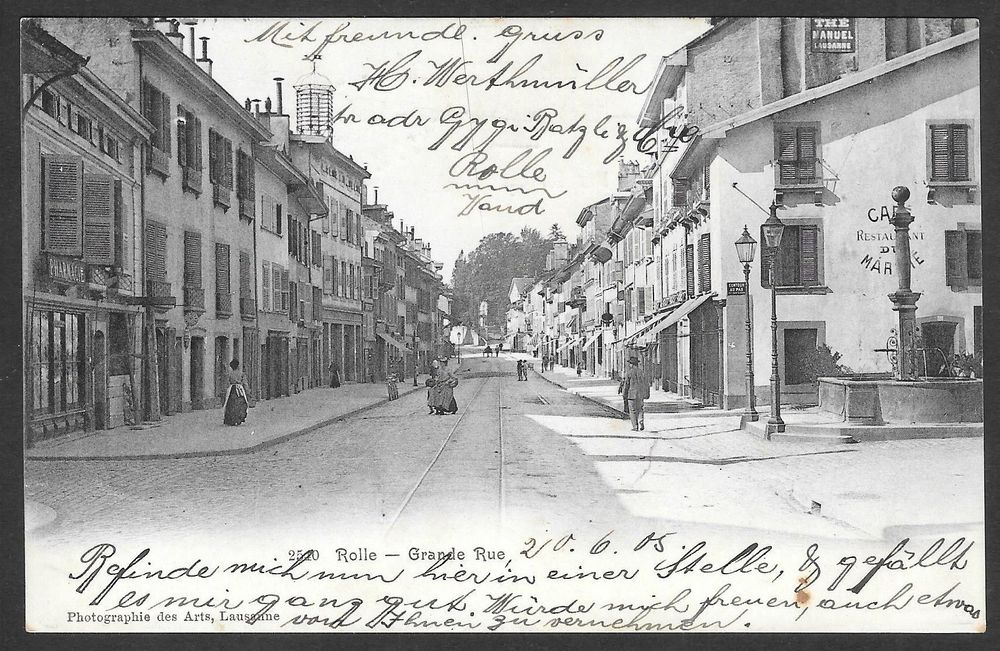 THE
MANUEL
LAUSANNE
Mit freundl. Gruss
H. Werthmüller
pr adr Gygi Batzli & Cie
Rolle
Vaud
CAFÉ
RESTAURANT
DU
MARCHÉ
2510 Rolle — Grande Rue
20. 6. 05
Befinde mich nun hier in einer Stelle, & gefällt
es mir ganz gut. Würde mich freuen, auch etwas
von Ihnen zu vernehmen.
Photographie des Arts, Lausanne